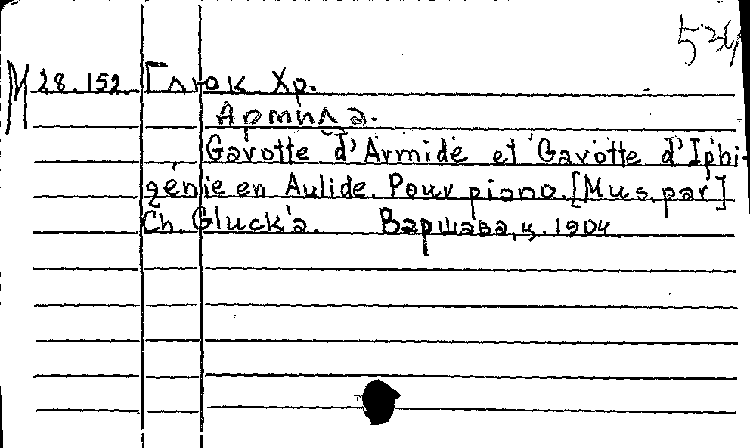 М 28.152. Глюк Хр.
Армида.
Gavotte d'Armide et Gavotte d'Iphi-
génie en Aulide. Pour piano. [Mus. par]
Ch. Gluck'a. Варшава, ц. 1904